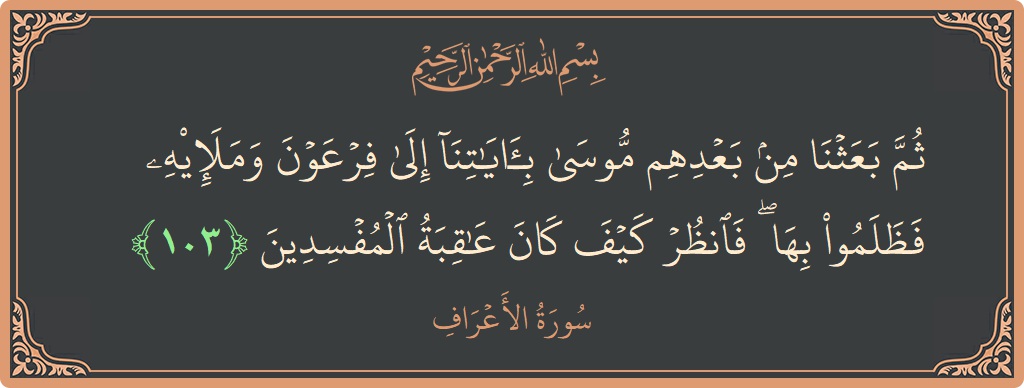 بِسْمِ اللَّهِ الرَّحْمَٰنِ الرَّحِيمِ
ثُمَّ بَعَثْنَا مِنۢ بَعْدِهِم مُّوسَىٰ بِـَٔايَـٰتِنَآ إِلَىٰ فِرْعَوْنَ وَمَلَإِيْهِۦ
فَظَلَمُوا۟ بِهَا ۖ فَٱنظُرْ كَيْفَ كَانَ عَـٰقِبَةُ ٱلْمُفْسِدِينَ ﴿١٠٣﴾
سُورَةُ الأَعْرَافِ